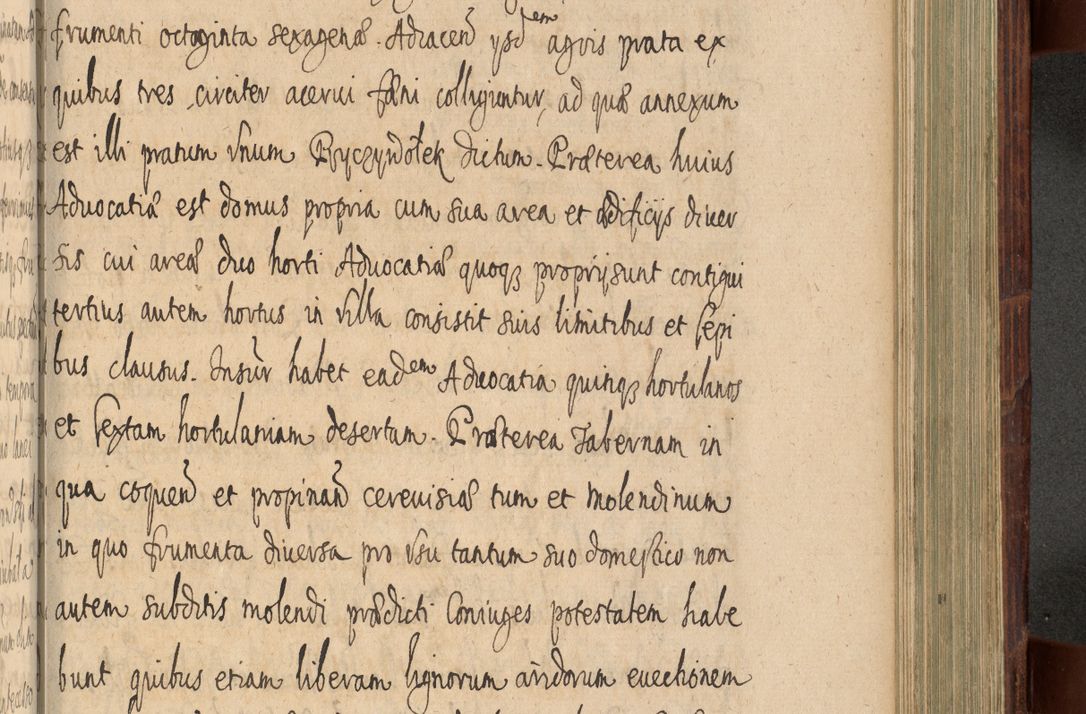 frumenti octoginta sexagenas. Adiacen̄ ysd^em agris prata ex
quibus tres circiter acerui fœni colliguntur, ad quæ annexum
est illi pratum vnum Pryczyrdołek dictum. Præterea huius
Aduocatiæ est domus propria cum sua area et ædificijs diuer
sis cui areæ duo horti Aduocatiæ quoqꝫ proprij sunt contigui
tertius autem hortus in villa consistit suis limitibus et sepi
bus clausus. Insup̄ habet ead^em Aduocatia quinqꝫ hortulanos
et sextam hortulaniam desertam. Præterea Tabernam in
qua coquen̄d et propinan̄d cereuisiæ tum et molendinum
in quo frumenta diuersa pro vsu tantum suo domestico non
autem subditis molendi prædicti Coniuges potestatem habe
bunt quibus etiam liberam lignorum aridorum euectionem